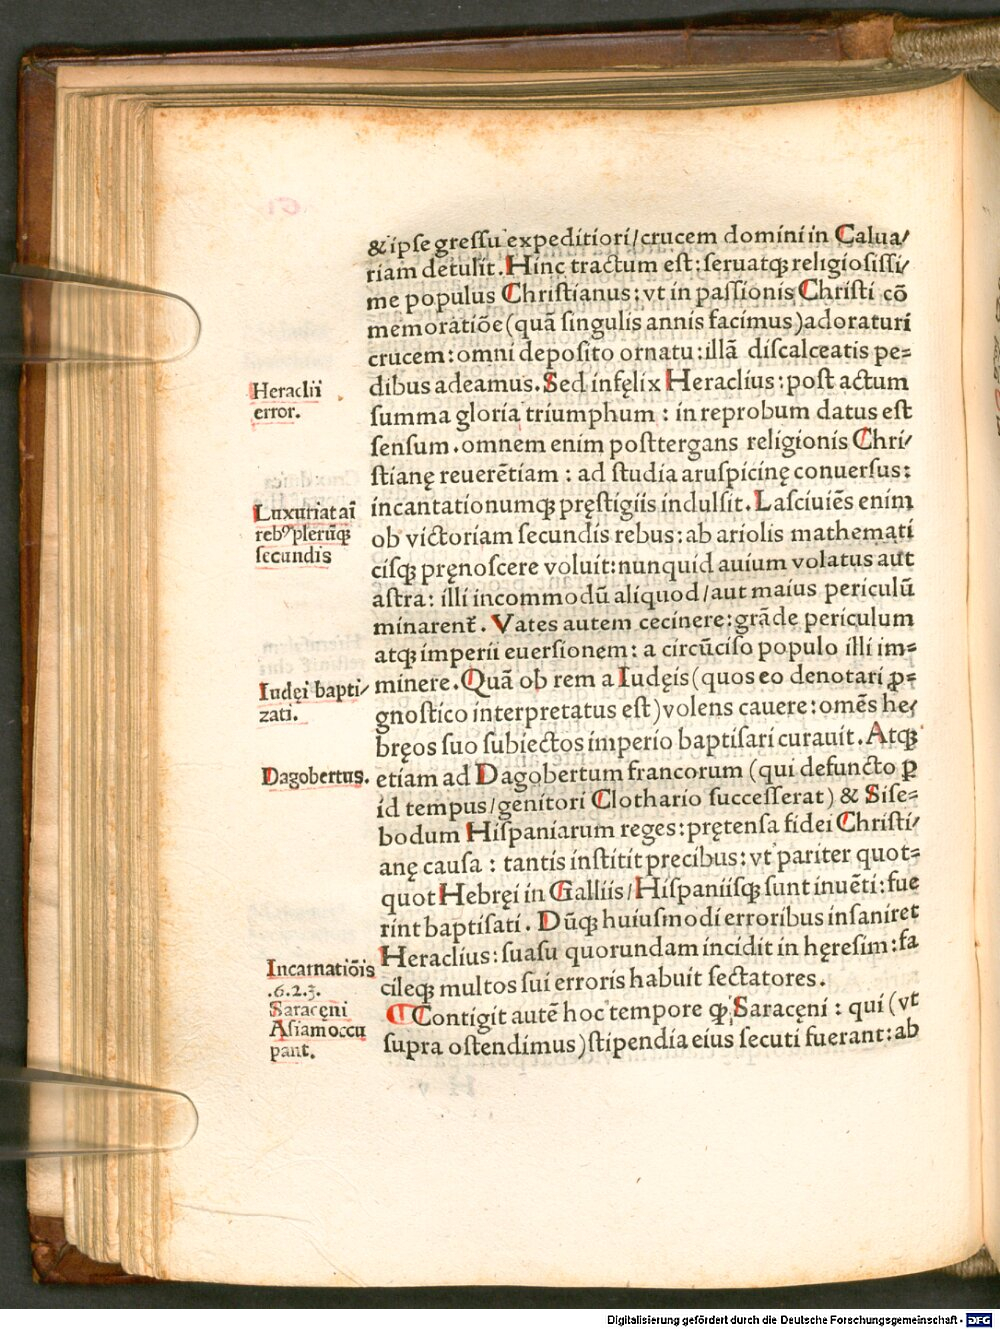 & ipſe greſſu expeditiori/crucem domini in Calua/
riam detulit. Hinc tractum eſt: ſeruatqꝫ religioſiſſi/
me populus Chriſtianus: vt in paſſionis Chriſti cō
memoratiōe (quā ſingulis annis facimus) adoraturi
crucem: omni depoſito ornatu: illā diſcalceatis pe=
dibus adeamus. Sed infęlix Heraclius: poſt actum
ſumma gloria triumphum : in reprobum datus eſt
ſenſum. omnem enim poſttergans religionis Chri/
ſtianę reuerētiam : ad ſtudia aruſpicinę conuerſus:
incantationumqꝫ pręſtigiis indulſit. Laſciuiēs enim
ob victoriam ſecundis rebus: ab ariolis mathemati
ciſqꝫ pręnoſcere voluit: nunquid auium volatus aut
aſtra: illi incommodū aliquod/aut maius periculū
minarent᷑. Vates autem cecinere: grāde periculum
atqꝫ imperii euerſionem: a circūciſo populo illi im=
minere. Quā ob rem a Iudęis (quos eo denotari ꝓ=
gnoſtico interpretatus eſt) volens cauere: omēs he/
bręos ſuo ſubiectos imperio baptiſari curauit. Atqꝫ
etiam ad Dagobertum francorum (qui defuncto ꝑ
id tempus/genitori Clothario ſucceſſerat) & Siſe=
bodum Hiſpaniarum reges: prętenſa fidei Chriſti/
anę cauſa : tantis inſtitit precibus: vt pariter quot=
quot Hebręi in Galliis/Hiſpaniiſqꝫ ſunt inuēti: fue
rint baptiſati. Dūqꝫ huiuſmodi erroribus inſaniret
Heraclius: ſuaſu quorundam incidit in hęreſim: fa
cileqꝫ multos ſui erroris habuit ſectatores.
¶ Contigit autē hoc tempore ꝙ Saracęni : qui (vt
ſupra oſtendimus) ſtipendia eius ſecuti fuerant: ab
Heraclii
error.
Luxuriat aī
rebꝰ plerūqꝫ
ſecundis
Iudęi bapti/
zati.
Dagobertus.
Incarnatiōis
.6.2.3.
Saracęni
Aſiam occu
pant.
Digitalisierung gefördert durch die Deutsche Forschungsgemeinschaft - DFG